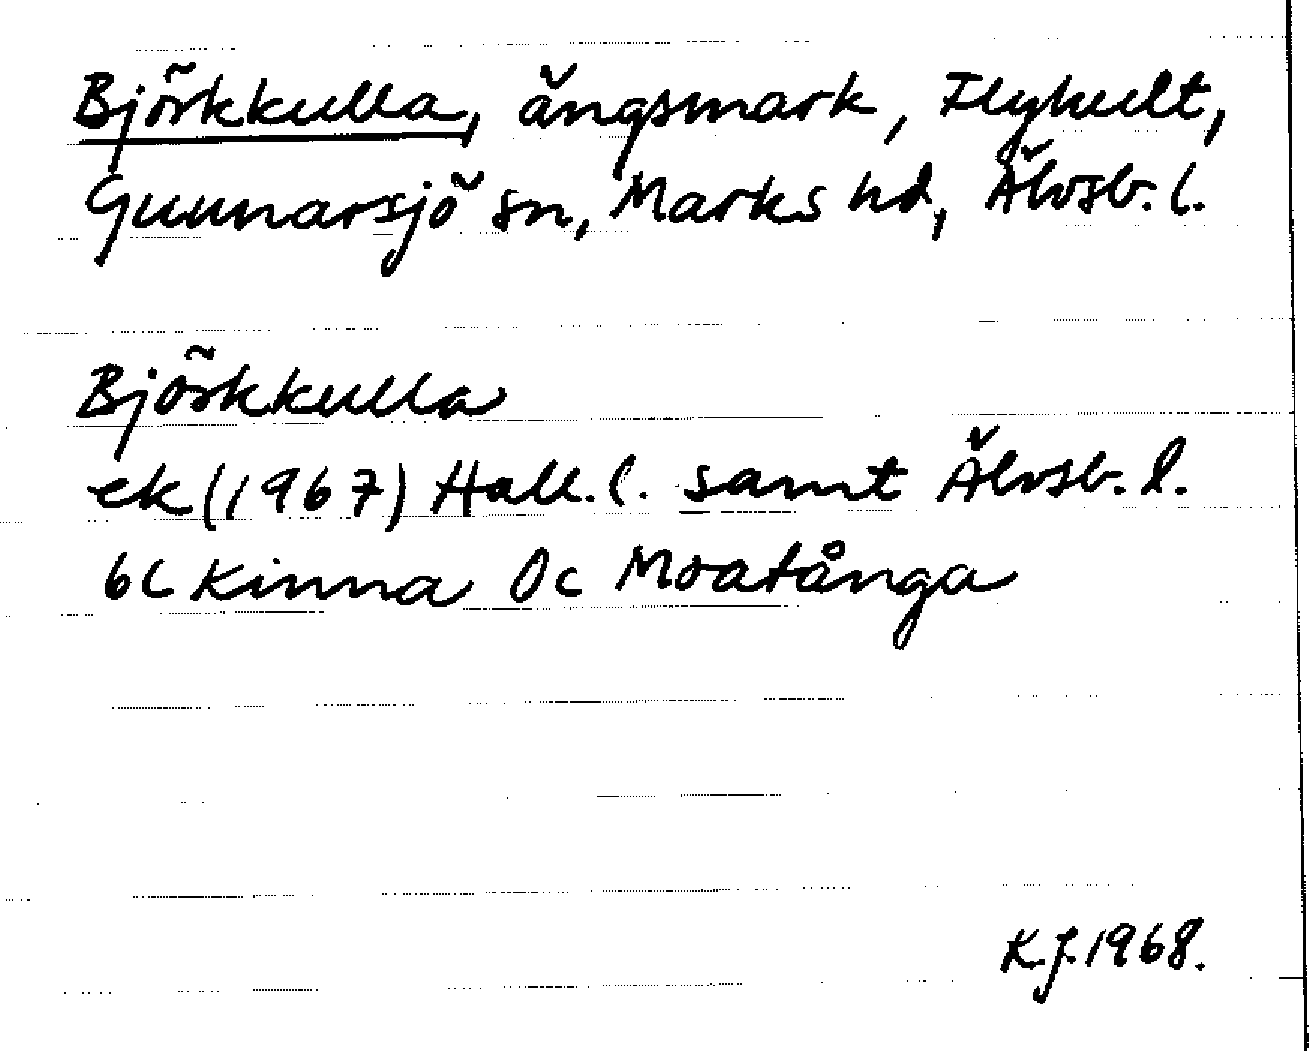 Björkkulla, ängsmark, Flyhult,
Gunnarsjö sn, Marks hd, Älvsb. l.
Björkkulla
ek (1967) Hall. l. samt Älvsb. l.
6C Kinna 0c Moatånga
K.J. 1968.